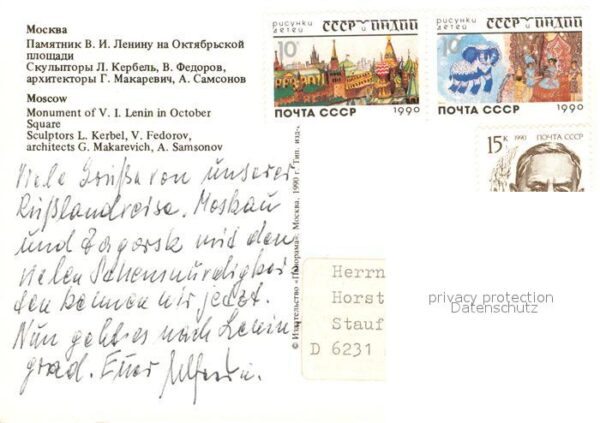 Москва
Памятник В. И. Ленину на Октябрьской
площади
Скульпторы Л. Кербель, В. Федоров,
архитекторы Г. Макаревич, А. Самсонов
Moscow
Monument of V. I. Lenin in October
Square
Sculptors L. Kerbel, V. Fedorov,
architects G. Makarevich, A. Samsonov
Viele Grüße von unserer
Rußlandreise. Moskau
und Zagorsk mit den
vielen Sehenswürdigkei-
ten kennen wir jetzt.
Nun geht es nach Lenin
grad. Euer
© Издательство «Панорама». Москва. 1990 г. Тип. изд.
рисунки детей СССР ИНДИЯ
10к
ПОЧТА СССР 1990
рисунки детей СССР ИНДИЯ
10к
ПОЧТА СССР 1990
15к 1990 ПОЧТА СССР
Herrn
Horst
Stauf
D 6231
privacy protection
Datenschutz